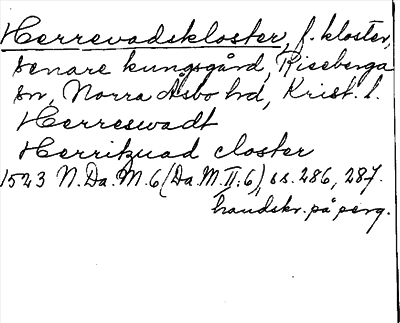 Herrevadskloster, f. kloster,
senare kungsgård, Riseberga
sn, Norra Åsbo hd, Krist. l.
Herreswadt
Herritzuad closter
1523 N.Da.M.6 (Da.M.II:6), ss. 286, 287.
handskr. på perg.